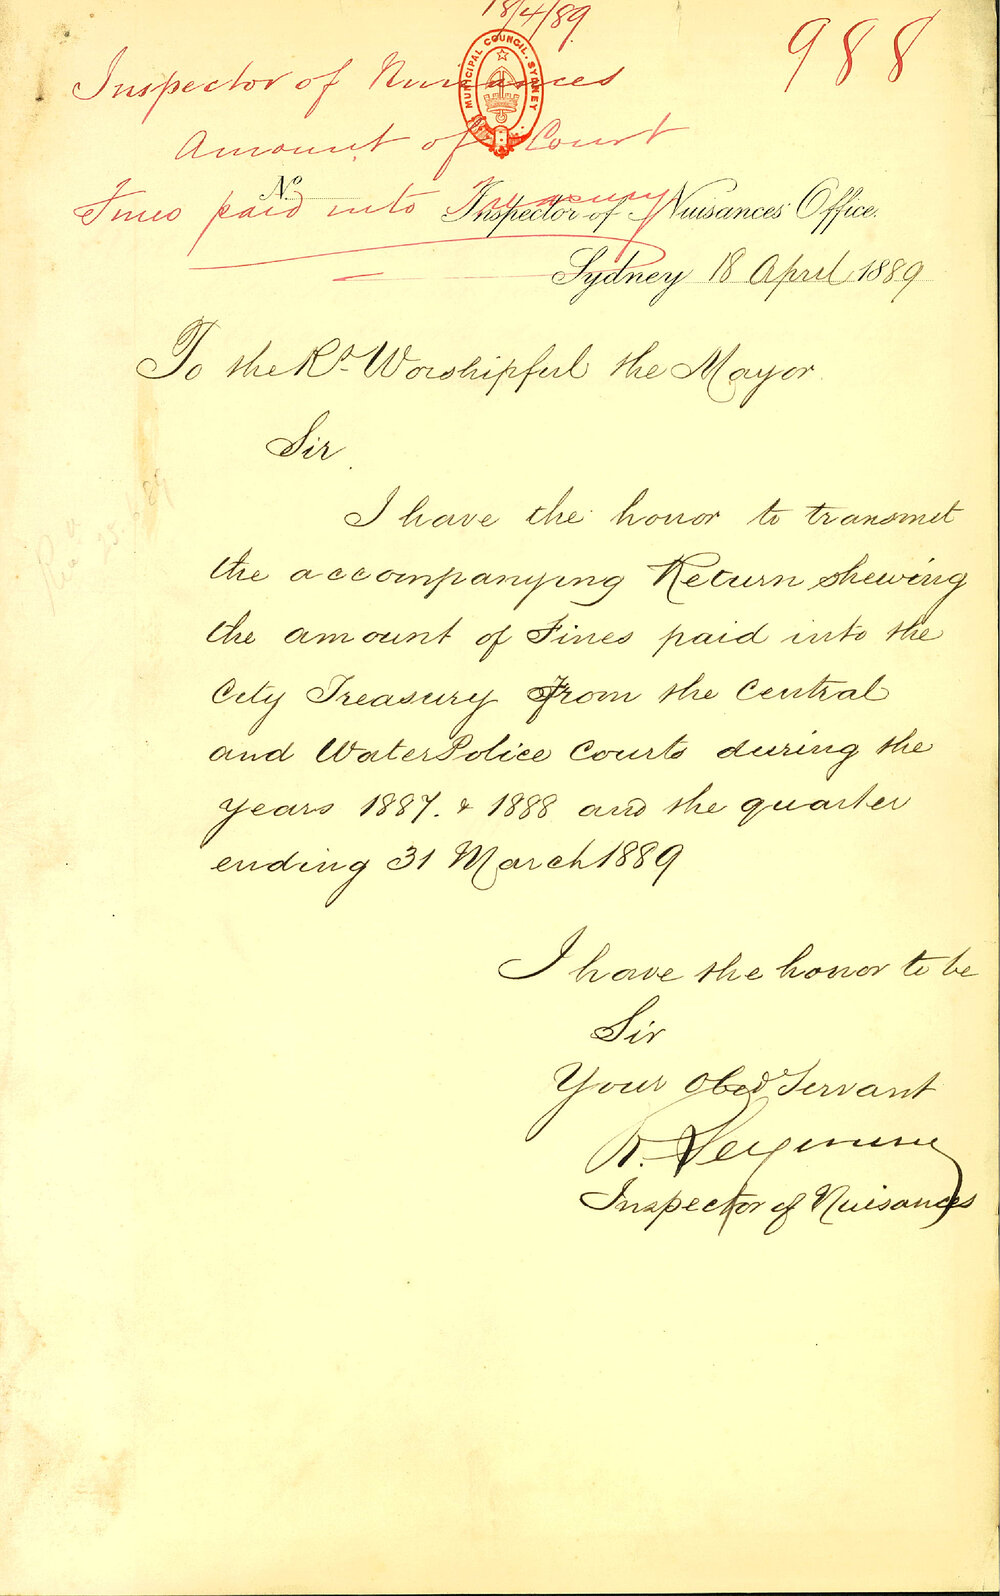 18/4/89
988
Inspector of Nuisances
Amount of Court
Fines paid into Treasury
MUNICIPAL COUNCIL. SYDNEY
No.
Inspector of Nuisances Office.
Sydney 18 April 1889
To the Rt. Worshipful the Mayor
Sir
I have the honor to transmit
the accompanying Return shewing
the amount of Fines paid into the
City Treasury from the Central
and Water Police Courts during the
years 1887. & 1888 and the quarter
ending 31 March 1889
I have the honor to be
Sir
Your Obed Servant
R. Seymour
Inspector of Nuisances